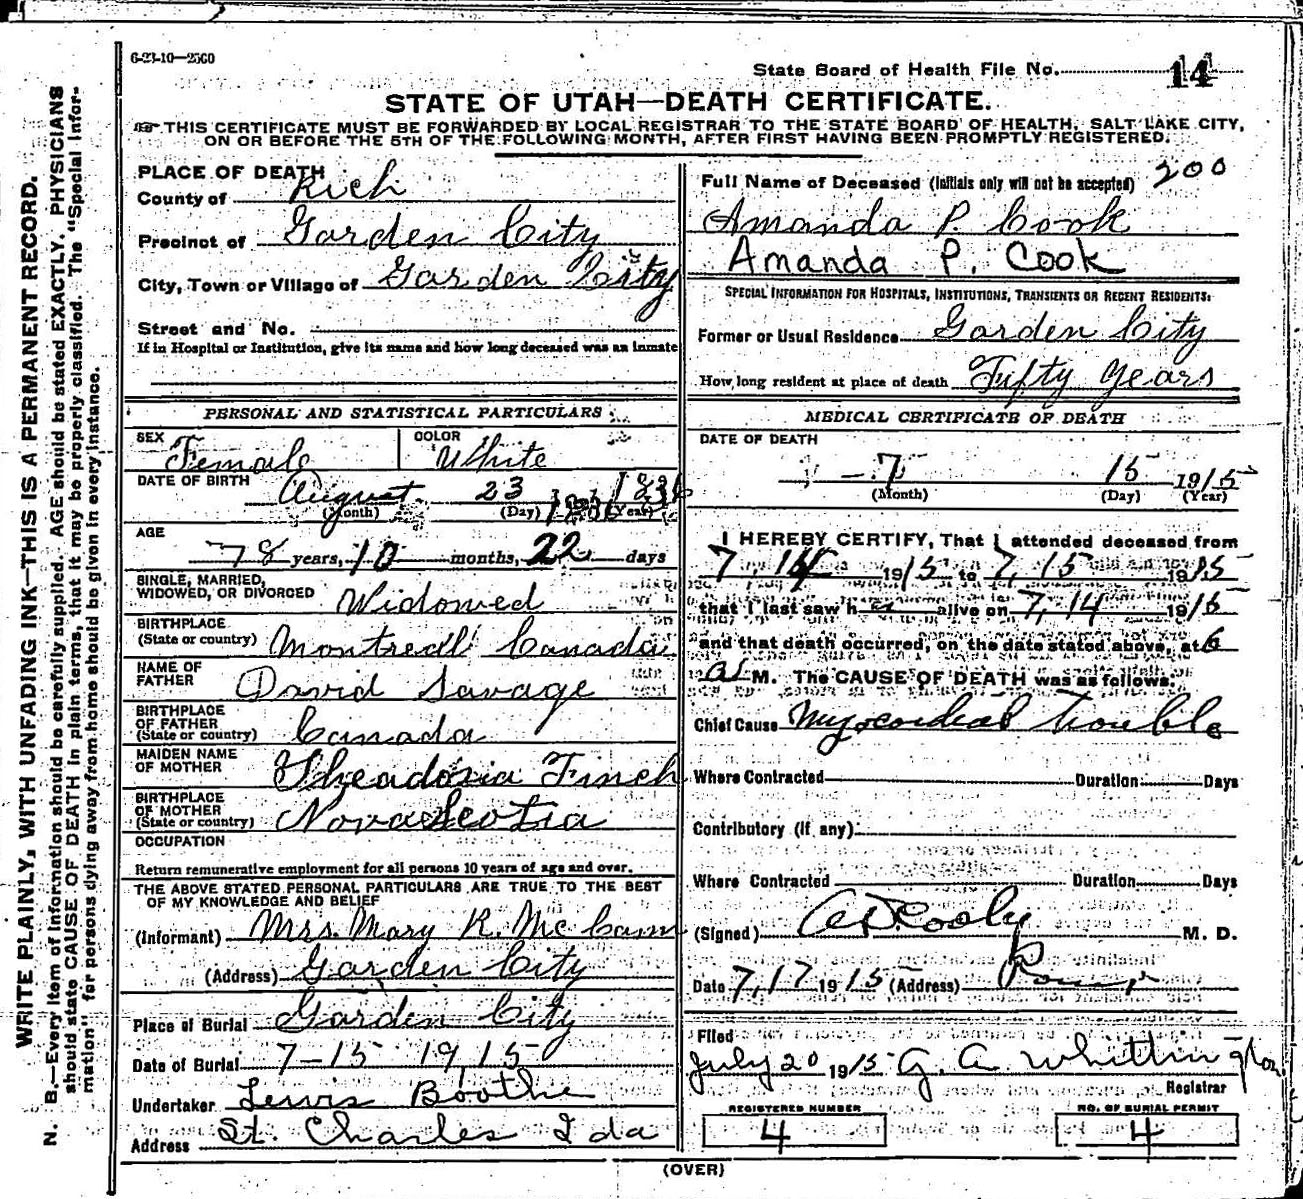 6-23-10—2560
State Board of Health File No. 14
STATE OF UTAH—DEATH CERTIFICATE.
THIS CERTIFICATE MUST BE FORWARDED BY LOCAL REGISTRAR TO THE STATE BOARD OF HEALTH, SALT LAKE CITY,
ON OR BEFORE THE 5TH OF THE FOLLOWING MONTH, AFTER FIRST HAVING BEEN PROMPTLY REGISTERED.
WRITE PLAINLY, WITH UNFADING INK—THIS IS A PERMANENT RECORD.
N. B.—Every item of information should be carefully supplied. AGE should be stated EXACTLY. PHYSICIANS
should state CAUSE OF DEATH in plain terms, that it may be properly classified. The "Special Infor-
mation" for persons dying away from home should be given in every instance.
PLACE OF DEATH
County of Rich
Precinct of Garden City
City, Town or Village of Garden City
Street and No.
If in Hospital or Institution, give its name and how long deceased was an inmate
PERSONAL AND STATISTICAL PARTICULARS
SEX Female
COLOR White
DATE OF BIRTH August 23 1836
(Month) (Day) (Year)
AGE
78 years, 10 months, 22 days
SINGLE, MARRIED,
WIDOWED, OR DIVORCED Widowed
BIRTHPLACE
(State or country) Montreal Canada
NAME OF
FATHER David Savage
BIRTHPLACE
OF FATHER
(State or country) Canada
MAIDEN NAME
OF MOTHER Theadosia Finch
BIRTHPLACE
OF MOTHER
(State or country) Nova Scotia
OCCUPATION
Return remunerative employment for all persons 10 years of age and over.
THE ABOVE STATED PERSONAL PARTICULARS ARE TRUE TO THE BEST
OF MY KNOWLEDGE AND BELIEF
(Informant) Mrs. Mary R. McCann
(Address) Garden City
Place of Burial Garden City
Date of Burial 7-15 1915
Undertaker Lewis Boothe
Address St. Charles Ida
Full Name of Deceased (Initials only will not be accepted) 200
Amanda P. Cook
Amanda P. Cook
SPECIAL INFORMATION FOR HOSPITALS, INSTITUTIONS, TRANSIENTS OR RECENT RESIDENTS:
Former or Usual Residence Garden City
How long resident at place of death Fifty years
MEDICAL CERTIFICATE OF DEATH
DATE OF DEATH
7 15 1915
(Month) (Day) (Year)
I HEREBY CERTIFY, That I attended deceased from
7 14 1915 to 7, 15 1915
that I last saw h alive on 7, 14 1915
and that death occurred, on the date stated above, at 6
a M. The CAUSE OF DEATH was as follows:
Chief Cause Myocardial trouble
Where Contracted Duration Days
Contributory (if any)
Where Contracted Duration Days
(Signed) Cooly M. D.
Date 7, 17 1915 (Address)
Filed
July 20 1915 G. A. Whittington
Registrar
REGISTERED NUMBER
4
NO. OF BURIAL PERMIT
4
(OVER)